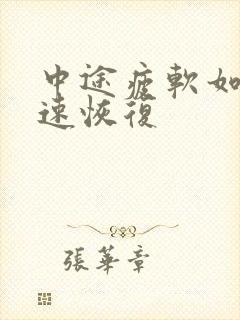 中途疲軟如
速恢復
張華章